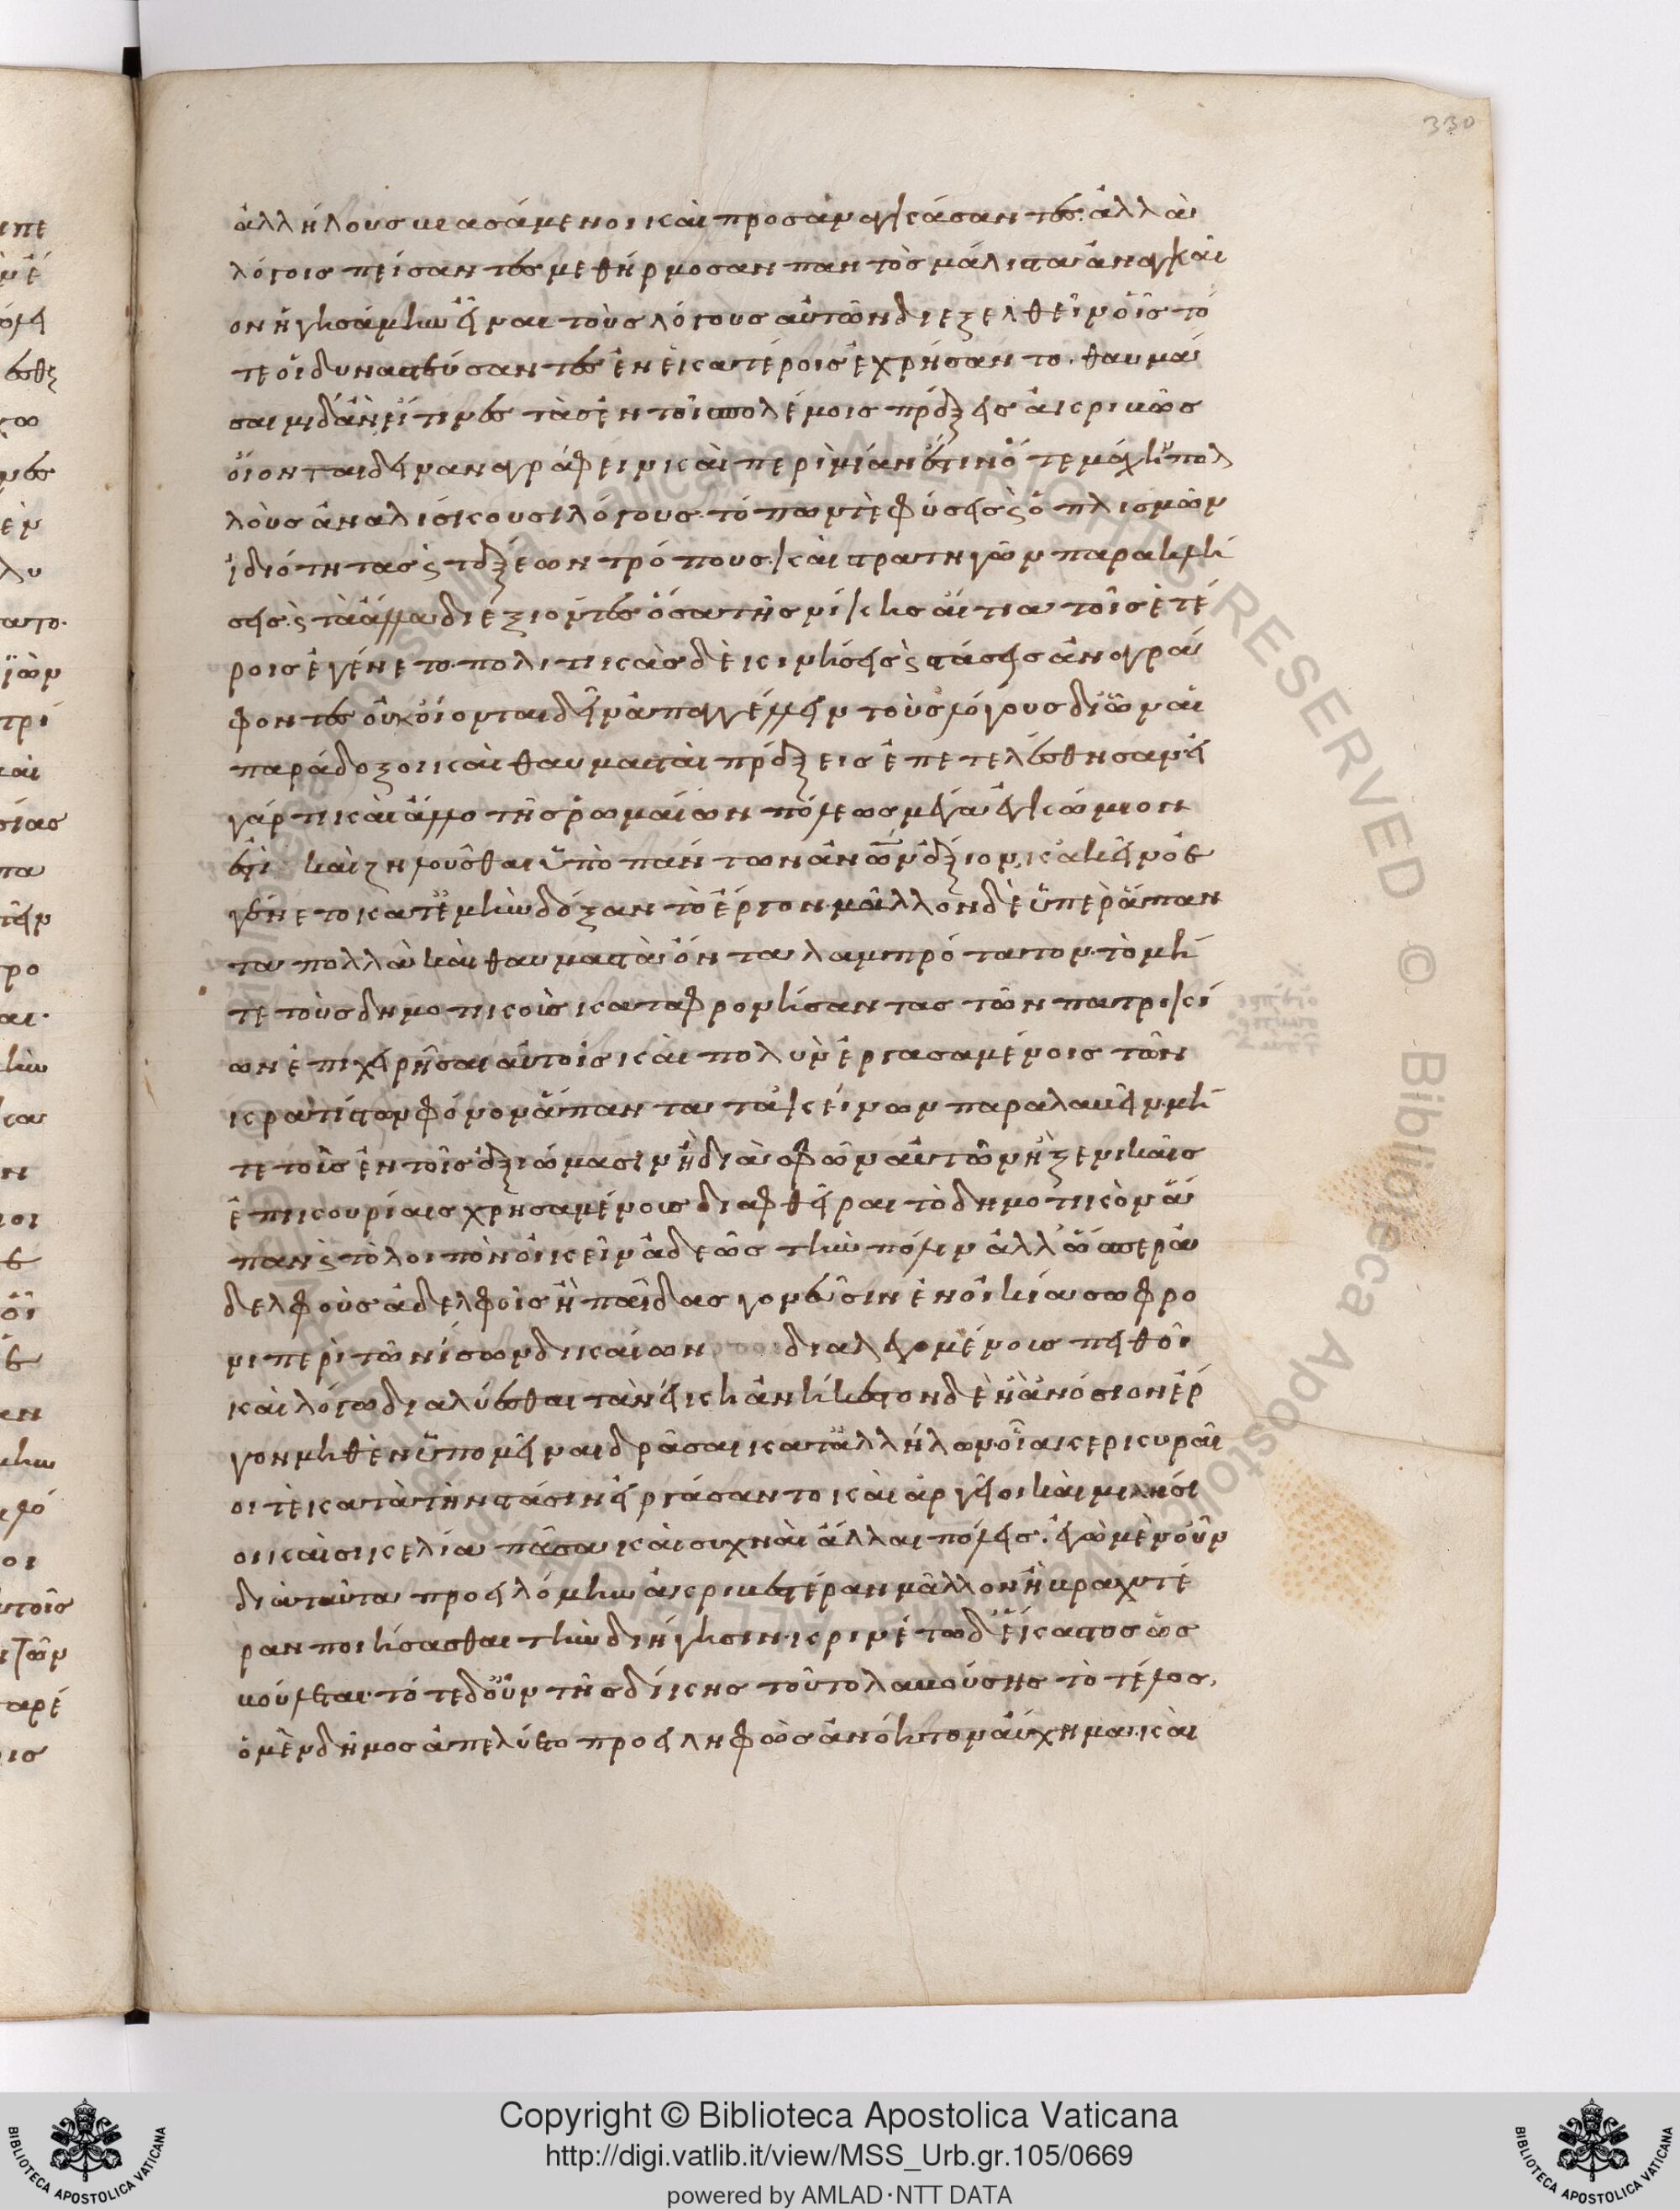 330
ἀλλήλους βιασάμενοι καὶ προσαναγκάσαντες· ἀλλὰ
λόγοις πείσαντες μεθήρμοσαν παντὸς μάλιστα ἀναγκαῖ
ον ἡγησάμην εἶναι τοὺς λόγους αὐτῶν διεξελθεῖν οἷς τό
τε οἱ δυναστεύσαντες ἐν ἑκατέροις ἐχρήσαντο· θαυμά
σαιμι δ' ἂν εἴ τινες τὰς ἐν τοῖς πολέμοις πράξεις ἀκριβῶς
οἴονται δεῖν ἀναγράφειν καὶ περὶ μίαν ἔστιν ὅτε μάχην πολ
λοὺς ἀναλίσκουσι λόγους· τόπων τε φύσεις καὶ ὁπλισμῶν
ἰδιότητας καὶ τάξεων τρόπους καὶ στρατηγῶν παραινέ
σεις καὶ τὰ ἄλλα διεξιόντες ὅσα τῆς νίκης αἴτια τοῖς ἑτέ
ροις ἐγένετο· πολιτικὰς δὲ κινήσεις καὶ στάσεις ἀναγρά
φοντες οὐκ οἴονται δεῖν ἀπαγγέλλειν τοὺς λόγους δι' ὧν αἱ
παράδοξοι καὶ θαυμασταὶ πράξεις ἐπετελέσθησαν· εἰ
γάρ τι καὶ ἄλλο τῆς ῥωμαίων πόλεως μέγα ἐγκώμιόν
ἐστι καὶ ζηλοῦσθαι ὑπὸ πάντων ἀνθρώπων ἄξιον, κἀκεῖνο ἐ
γένετο κατ' ἐμὴν δόξαν τὸ ἔργον· μᾶλλον δὲ ὑπὲρ ἅπαν
τα πολλὰ καὶ θαυμαστὰ ὄντα λαμπρότατον· τὸ μή
τε τοὺς δημοτικοὺς καταφρονήσαντας τῶν πατρικί
ων ἐπιχειρῆσαι αὐτοῖς καὶ πολὺν ἐργασαμένοις τῶν
κρατίστων φόνον ἅπαντα τἀκείνων παραλαβεῖν· μή
τε τοὺς ἐν τοῖς ἀξιώμασιν ἢ διὰ σφῶν αὐτῶν ἢ ξενικαῖς
ἐπικουρίαις χρησαμένους διαφθεῖραι τὸ δημοτικὸν ἅ
παν καὶ τὸ λοιπὸν οἰκεῖν ἀδεῶς τὴν πόλιν ἀλλ' ὥσπερ ἀ
δελφοὺς ἀδελφοῖς ἢ παῖδας γονεῦσιν ἐν οἰκίᾳ σώφρο
νι περὶ τῶν ἴσων δικαίων διαλεγομένους πειθοῖ
καὶ λόγῳ διαλύεσθαι τὰ νείκη ἀνήκεστον δὲ ἢ ἀνόσιον ἔρ
γον μηθὲν ὑπομεῖναι δρᾶσαι κατ' ἀλλήλων· οἷα κερκυραῖ
οί τε κατὰ τὴν στάσιν εἰργάσαντο καὶ ἀργεῖοι καὶ μιλήσι
οι καὶ σικελία πᾶσα καὶ συχναὶ ἄλλαι πόλεις. ἐγὼ μὲν οὖν
διὰ ταῦτα προειλόμην ἀκριβεστέραν μᾶλλον ἢ βραχυτέ
ραν ποιήσασθαι τὴν διήγησιν· κρινέτω δ' ἕκαστος ὡς
βούλεται· τότε δ' οὖν τῆς δίκης τοῦτο λαβούσης τὸ τέλος,
ὁ μὲν δῆμος ἀπελύετο προσειληφὼς ἀνόητον αὔχημα· καὶ
Copyright © Biblioteca Apostolica Vaticana
http://digi.vatlib.it/view/MSS_Urb.gr.105/0669
powered by AMLAD·NTT DATA
BIBLIOTECA APOSTOLICA VATICANA
BIBLIOTECA APOSTOLICA VATICANA